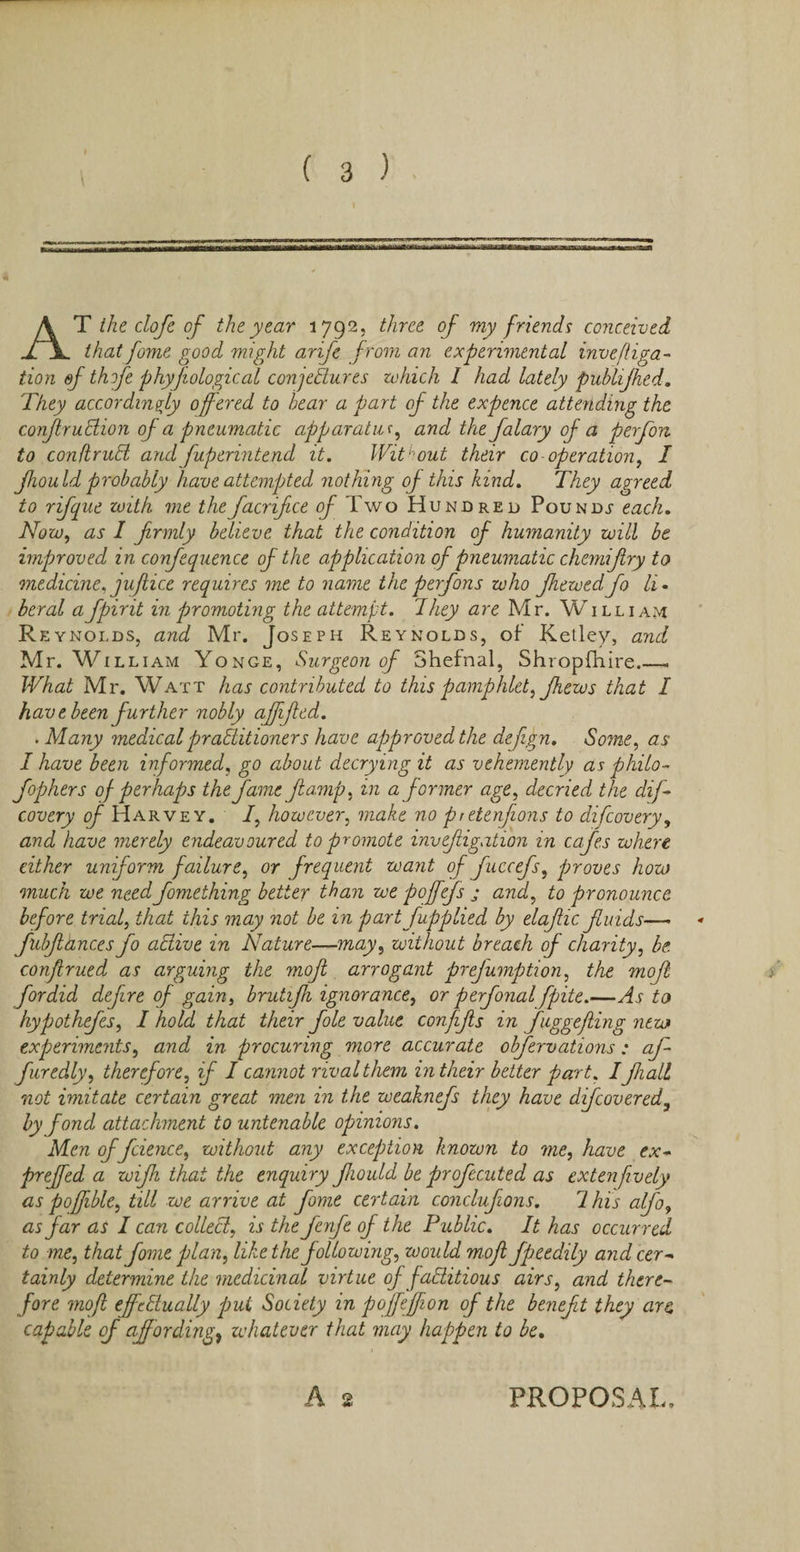 ( 3 )
AT the cloſe of the year 1792, three of my friends conceived
that ſome good might ariſe from an experimental inveſtiga-
tion of thoſe phyſiological conjectures which I had lately publiſhed.
They accordingly offered to bear a part of the expence attending the
conſtruction of a pneumatic apparatus, and the ſalary of a perſon
to conſtruct and ſuperintend it. Without their co-operation, I
ſhould probably have attempted nothing of this kind. They agreed
to riſque with me the ſacrifice of Two Hundred Pounds each.
Now, as I firmly believe that the condition of humanity will be
improved in conſequence of the application of pneumatic chemiſtry to
medicine, juſtice requires me to name the perſons who ſhewed ſo li-
beral a ſpirit in promoting the attempt. They are Mr. William
Reynolds, and Mr. Joseph Reynolds, of Ketley, and
Mr. William Yonge, Surgeon of Shefnal, Shropſhire.—
What Mr. Watt has contributed to this pamphlet, ſhews that I
have been further nobly aſſiſted.
Many medical practitioners have approved the deſign. Some, as
I have been informed, go about decrying it as vehemently as philo-
ſophers of perhaps the ſame ſtamp, in a former age, decried the diſ-
covery of Harvey. I, however, make no pretenſions to diſcovery,
and have merely endeavoured to promote inveſtigation in caſes where
either uniform failure, or frequent want of ſucceſs, proves how
much we need ſomething better than we poſſeſs ; and, to pronounce
before trial, that this may not be in part ſupplied by elaſtic fluids—
ſubſtances ſo active in Nature—may, without breach of charity, be
conſtrued as arguing the moſt arrogant preſumption, the moſt
ſordid deſire of gain, brutiſh ignorance, or perſonal ſpite.—As to
hypotheſes, I hold that their ſole value conſiſts in ſuggeſting new
experiments, and in procuring more accurate obſervations : aſ-
ſuredly, therefore, if I cannot rival them in their better part, I ſhall
not imitate certain great men in the weakneſs they have diſcovered,
by fond attachment to untenable opinions.
Men of ſcience, without any exception known to me, have ex-
preſſed a wiſh that the enquiry ſhould be proſecuted as extenſively
as poſſible, till we arrive at ſome certain concluſions. This alſo,
as far as I can collect, is the ſenſe of the Public. It has occurred
to me, that ſome plan, like the following, would moſt ſpeedily and cer-
tainly determine the medicinal virtue of factitious airs, and there-
fore moſt effectually put Society in poſſeſſion of the benefit they are
capable of affording, whatever that may happen to be.
A 2 PROPOSAL.